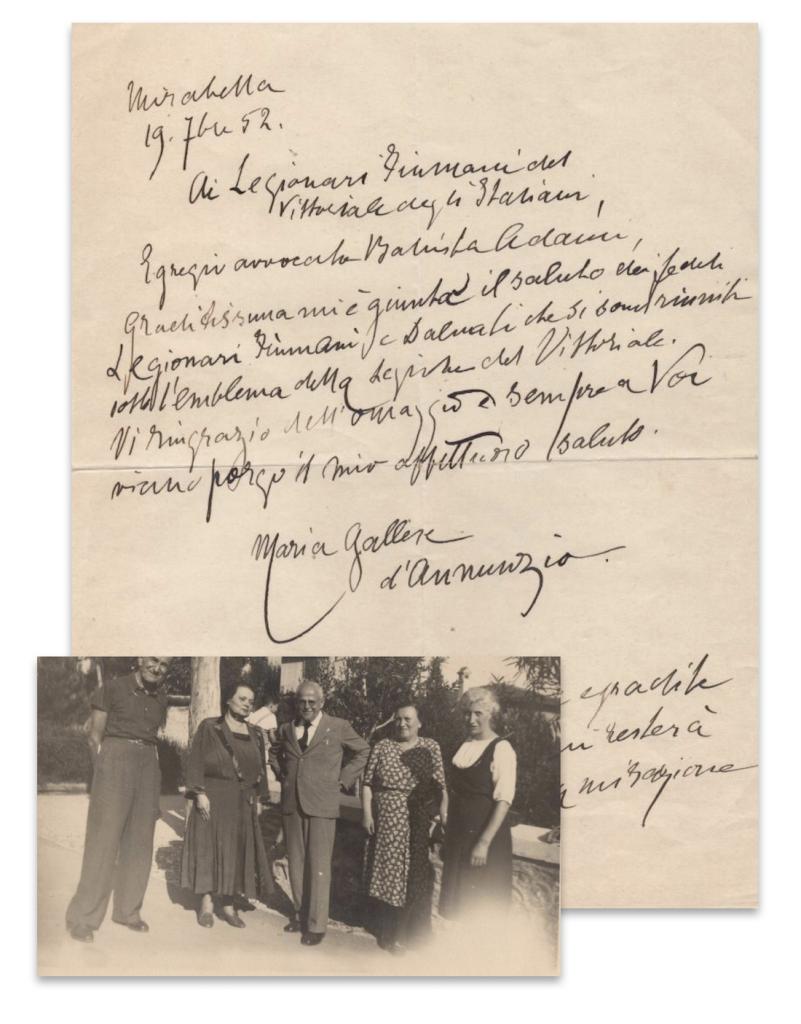 Mirabella
19. 7bre 52.
Ai Legionari Fiumani del
Vittoriale degli Italiani,
Egregio avvocato Batista Adami,
Graditissima mi è giunta il saluto dei fedeli
Legionari Fiumani, e Dalmati che si sono riuniti
sotto l'emblema della Legione del Vittoriale.
Vi ringrazio dell'omaggio e sempre a Voi
vicina porgo il mio affettuoso saluto.
Maria Gallese
d'Annunzio.
e gradite
resterà